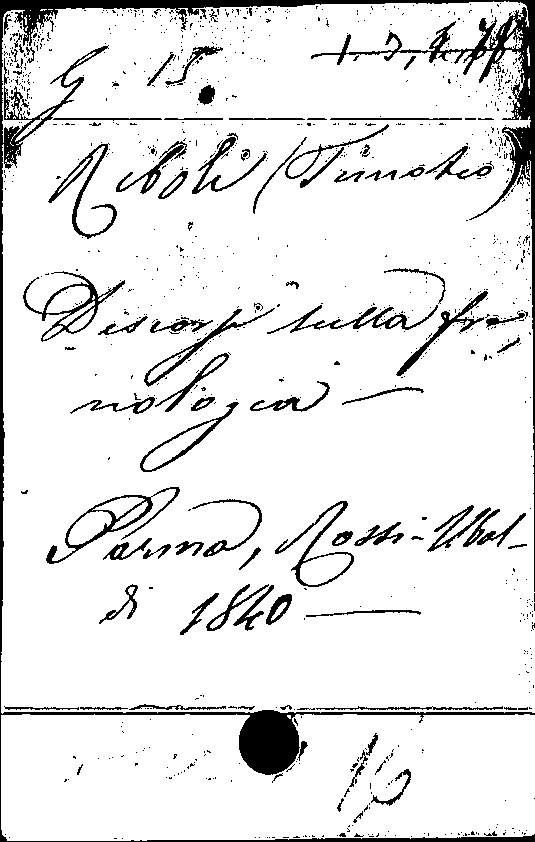 G. 15
Riboli (Timoteo)
Discorsi sulla fre-
nologia —
Parma, Rossi-Ubal-
di 1840 —
16